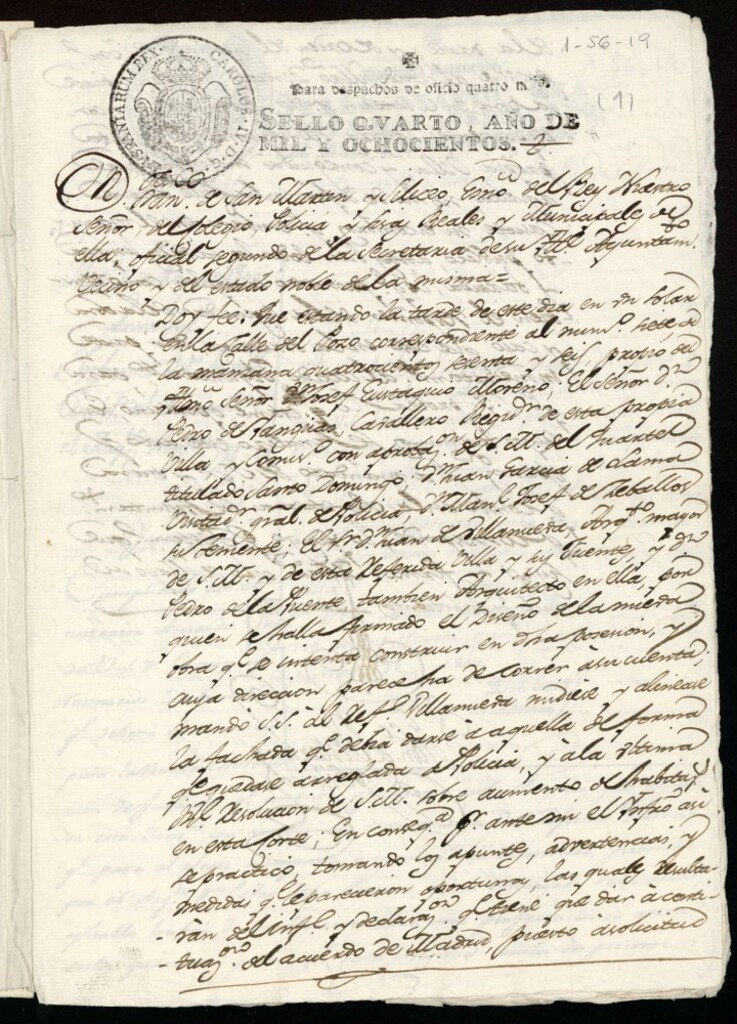 1-56-19
(1)
CAROLUS IV D G HISPANIARUM REX
Para despachos de oficio quatro mrs.
SELLO QVARTO, AÑO DE
MIL Y OCHOCIENTOS.
Dn. Franco. de San Martin y Siliceo, Esno. del Rey Nuestro
Señor, del Colegio, Policia y Reales y Municipales de
ella, oficial segundo de la Secretaria de su Ayuntamto.
Vecino y del estado noble de la misma=
Doy fee: Que estando la tarde de este dia en un solar
en la Calle del Pozo correspondiente al numo. siete, de
la manzana quatrocientos sesenta y seis, propio del
Señor Dn. Josef Eustaquio Moreno; El Señor Dn.
Pedro de Cavallero Regidr. de esta propia
Villa y Comisо. con aprobaon. de S.M. del Quartel
titulado Santo Domingo: Dn. Juan Garcia de Lama
Visitadr. gral. de Policia, Dn. Manl. Josef de Zeballos
su Teniente; El Sr. Dn. Juan de Villanueva, Arqto. mayor
de S.M. y de esta referida Villa y sus Fuentes, y Dn.
Pedro de la Puente tambien Arquitecto en ella, por
quien se halla firmado el Diseño de la nueva
obra qe. se intenta construir en dha posesion, y
cuya direccion parece ha de correr à su cuenta;
mandó S.S. al Refo. Villanueva midiese y alinease
la fachada qe. debia darse à aquella de forma
qe. quedase arreglada à Policia, y à la ultima
Rl. Resolucion de S.M. sobre aumento de habitas.
en esta Corte; En conseqa. pr. ante mi el Infro. asi
se practicó, tomando los apuntes, advertencias, y
medidas qe. le parecieron oportunas, las quales resulta-
-rán del infe. y declaraon. qe. tiene que dar à conti-
-nuaon. del acuerdo de Madrid, puesto à solicitud